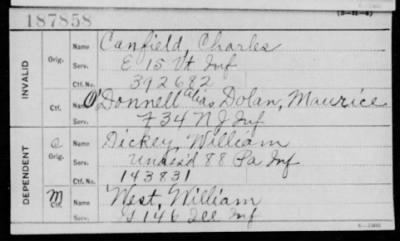 187858
(3-21-6)
INVALID
Orig. Name Canfield, Charles
Serv. E 15 Vt Inf
Ctf. No. 392682
Ctf. Name O'Donnell alias Dolan, Maurice
Serv. F 34 N J Inf
DEPENDENT
C Orig. Name Dickey William
Serv. Unass'd 88 Pa Inf
Ctf. No. 143831
M Ctf. Name West, William
Serv. G 146 Ill Inf